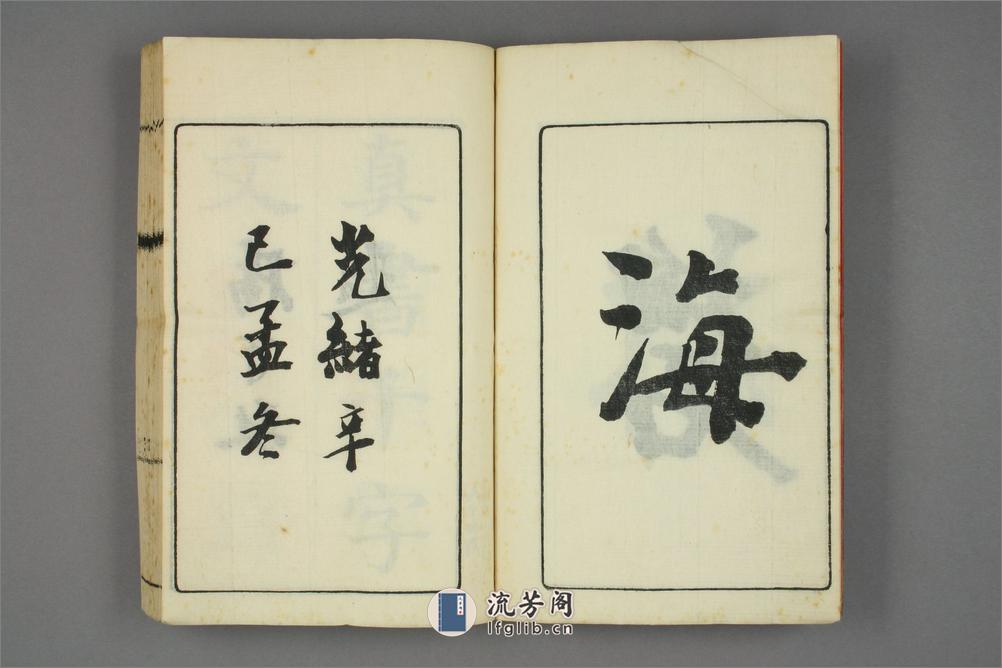 海
光緒辛
巳孟冬
流芳阁
lfglib.cn